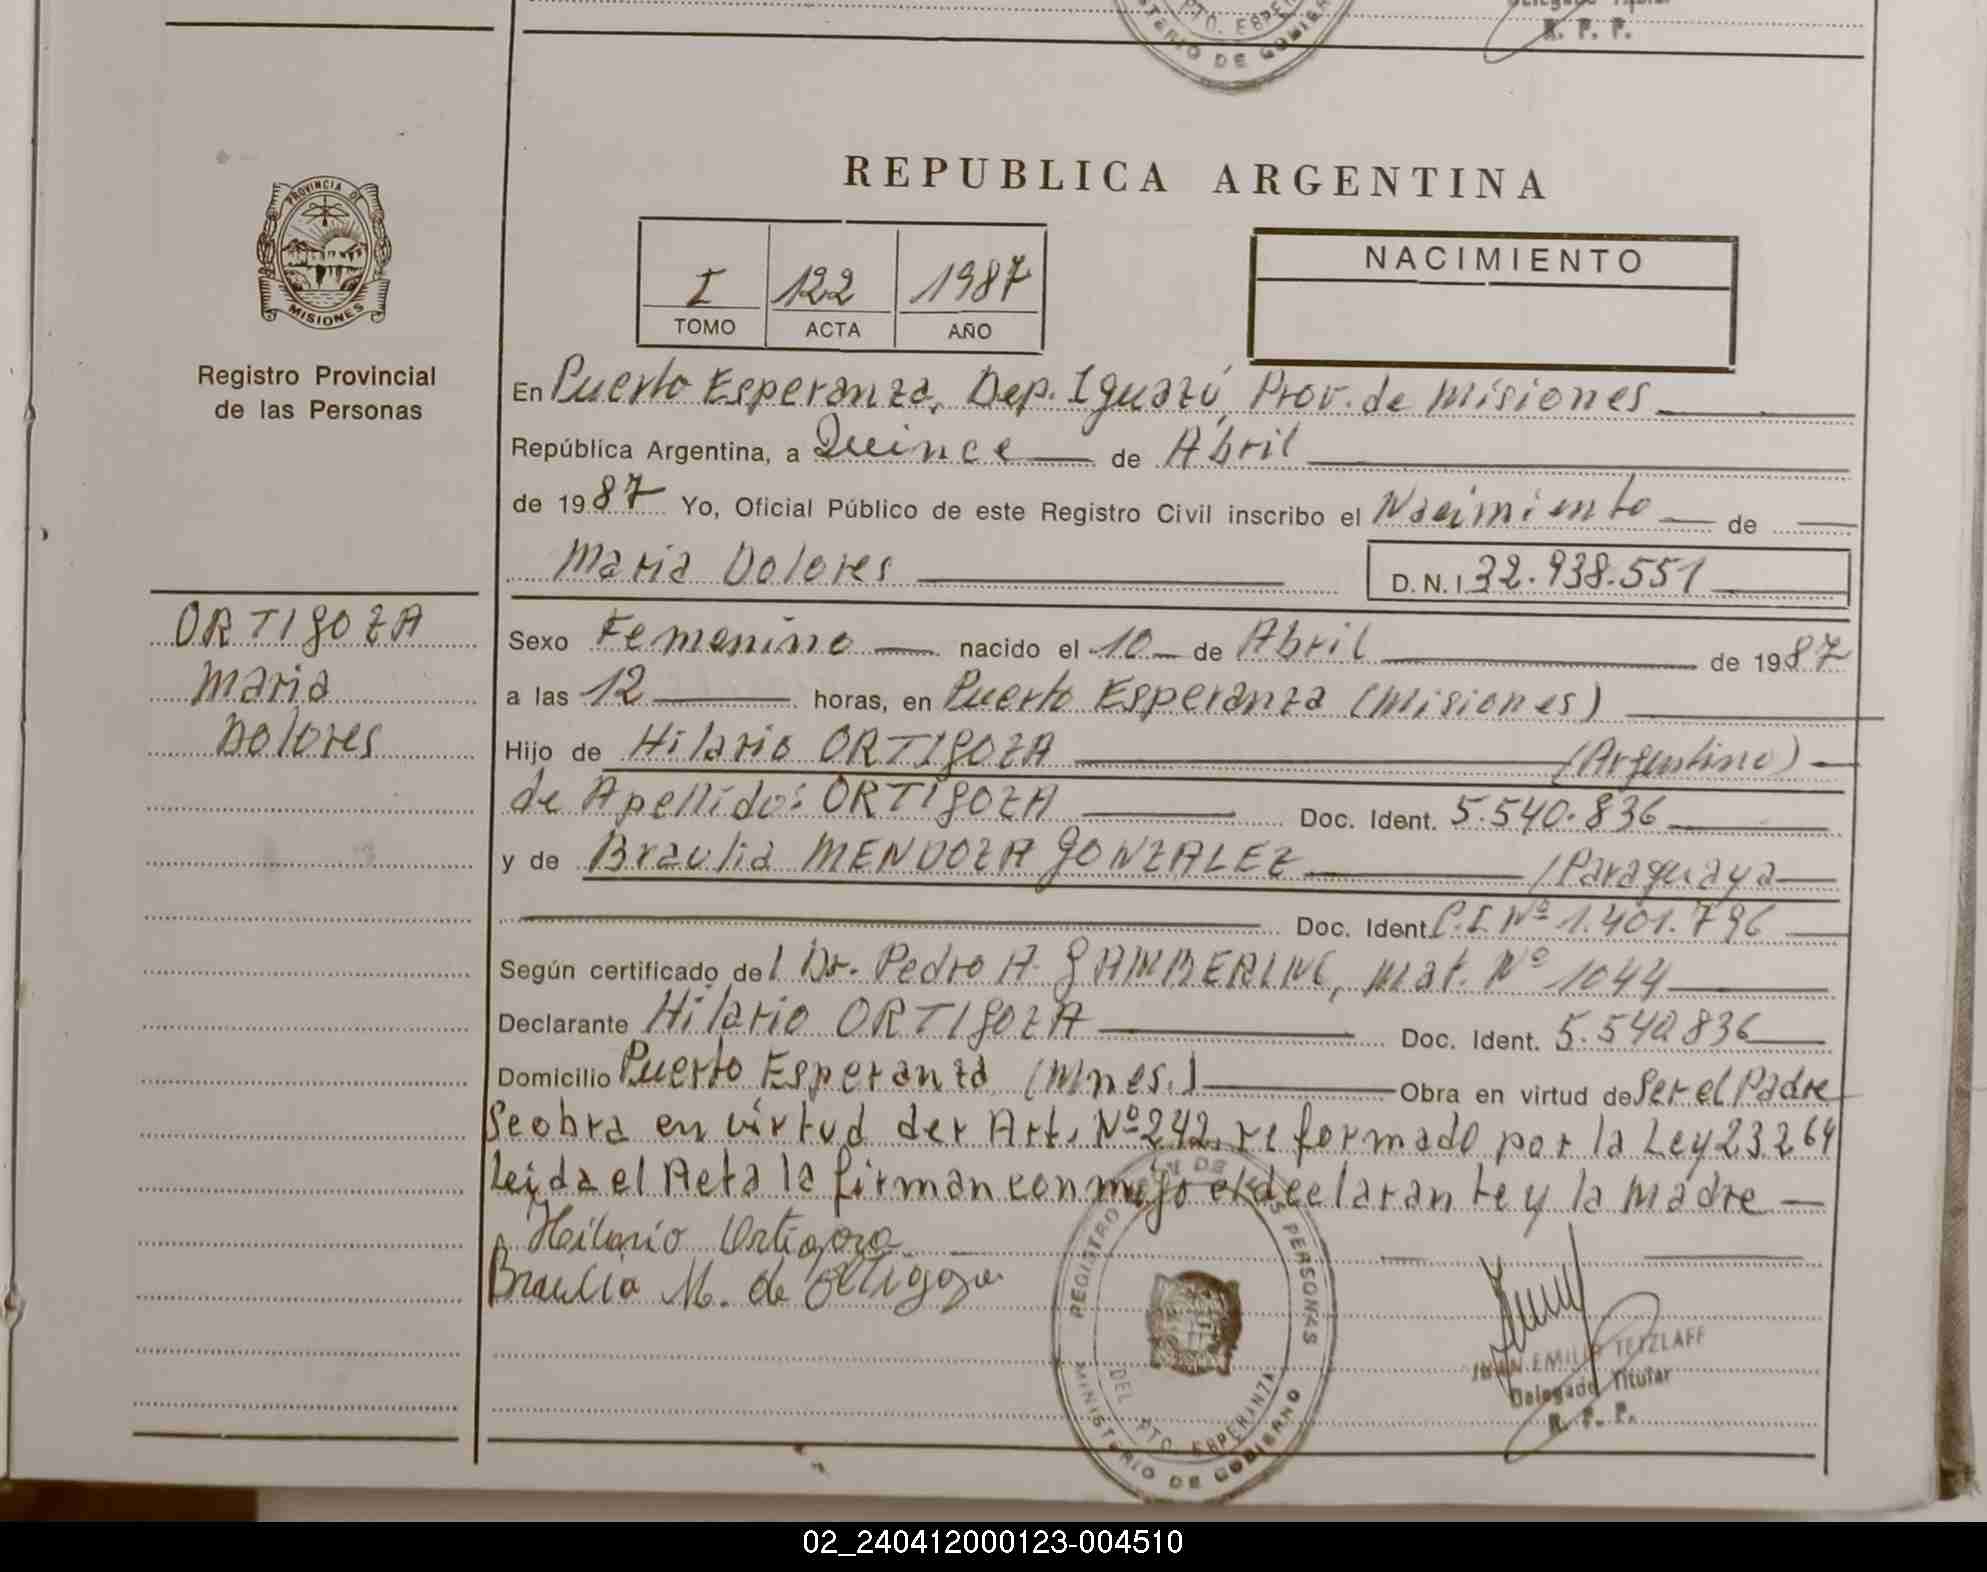 PTO. ESPER
STERIO DE GOBIER
Delegado Titular
R. P. P.
REPUBLICA ARGENTINA
PROVINCIA DE
MISIONES
Registro Provincial
de las Personas
I 122 1987
TOMO ACTA AÑO
NACIMIENTO
En Puerto Esperanza, Dep. Iguazú, Prov. de Misiones
República Argentina, a Quince de Abril
de 1987 Yo, Oficial Público de este Registro Civil inscribo el Nacimiento de
Maria Dolores D.N.I. 32.938.551
ORTIGOZA
Maria
Dolores
Sexo Femenino nacido el 10 de Abril de 1987
a las 12 horas, en Puerto Esperanza (Misiones)
Hijo de Hilario ORTIGOZA (Argentino)
de Apellido: ORTIGOZA Doc. Ident. 5.540.836
y de Braulia MENDOZA GONZALEZ (Paraguaya
Doc. Ident. C.I. Nº 1.401.796
Según certificado del Dr. Pedro A. GAMBERINI, Mat. Nº 1044
Declarante Hilario ORTIGOZA Doc. Ident. 5.540836
Domicilio Puerto Esperanza (Mnes.) Obra en virtud de Ser el Padre
Se obra en virtud der Art. Nº 242, reformado por la Ley 23.264
Leida el Acta la firman conmigo el declarante y la madre
Hilario Ortigoza
Braulia M. de Ortigoza
REGISTRO DE LAS PERSONAS
DEL PTO. ESPERANZA
MINISTERIO DE GOBIERNO
JUAN EMILIO TETZLAFF
Delegado Titular
R. P. P.
02_240412000123-004510